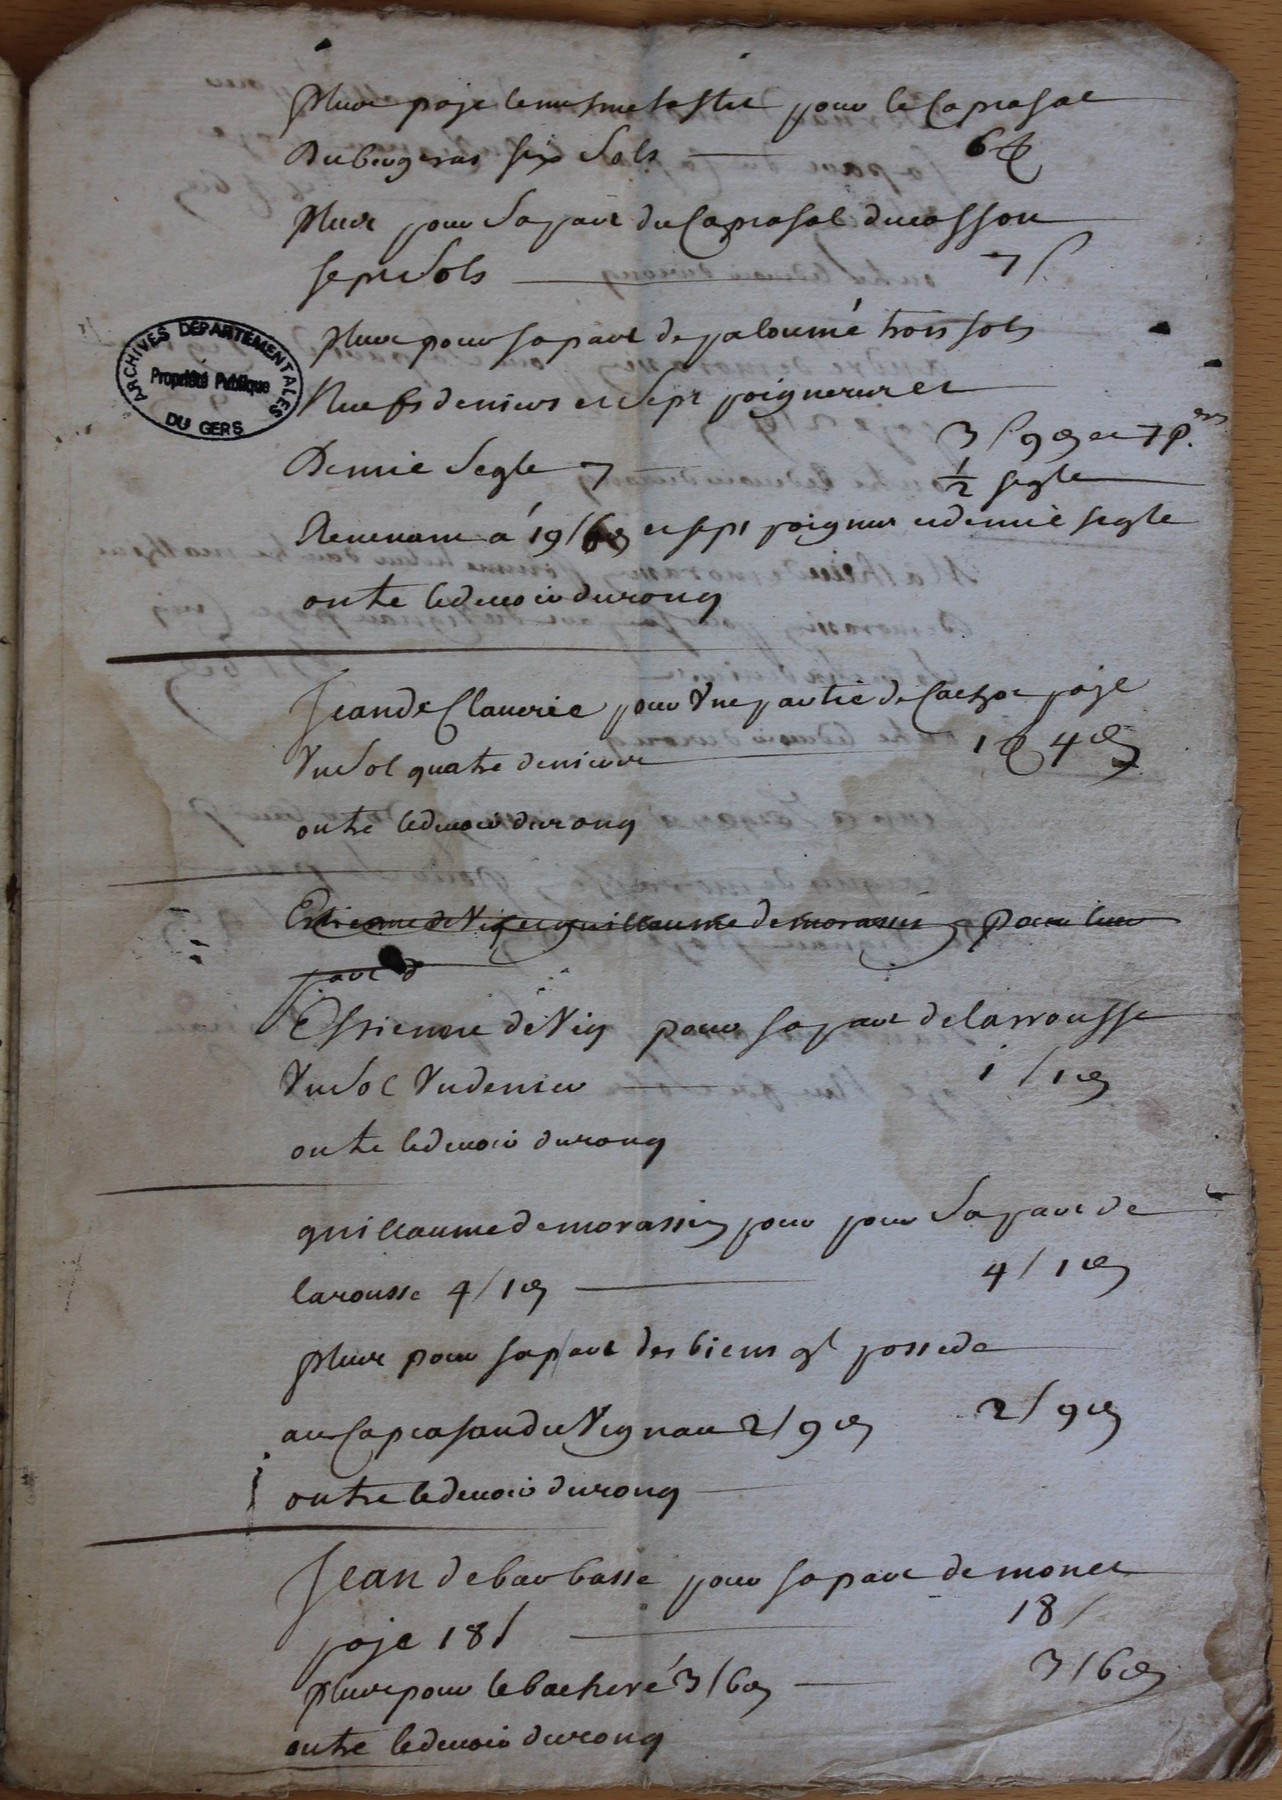 Plus paje le mesme haster pour le Caprasal
Dubougeras six sols 6 s
Plus pour sa part du Caprasal ducasson
sept sols 7 s
ARCHIVES DÉPARTEMENTALES
Propriété Publique
DU GERS
plus pour sa part de paloumé trois sols
Neufs deniers et sept poignerus et
3 s 9 d et 7 p.
Demie segle
1/2 segle
Revenant a 19 s 6 d et sept poignerus et demie segle
outre le devoir durong
Jean de Claverie pour Une partie de paje
Un sol quatre deniers 1 s 4 d
outre le devoir durong
Estienne de Vig et guillaume de morassin pour leur
part d
Estienne de Vig pour sa part de larrousse
Un sol Un denier 1 s 1 d
outre le devoir durong
guillaume de morassin pour pour sa part de
larousse 4 s 1 d 4 s 1 d
plus pour sa part des biens ql possede
au Caprasau du Vignau 2 s 9 d 2 s 9 d
outre le devoir durong
Jean de barbasse pour sa part de monet
paje 18 s 18 s
plus pour le bacheré 3 s 6 d 3 s 6 d
outre le devoir durong